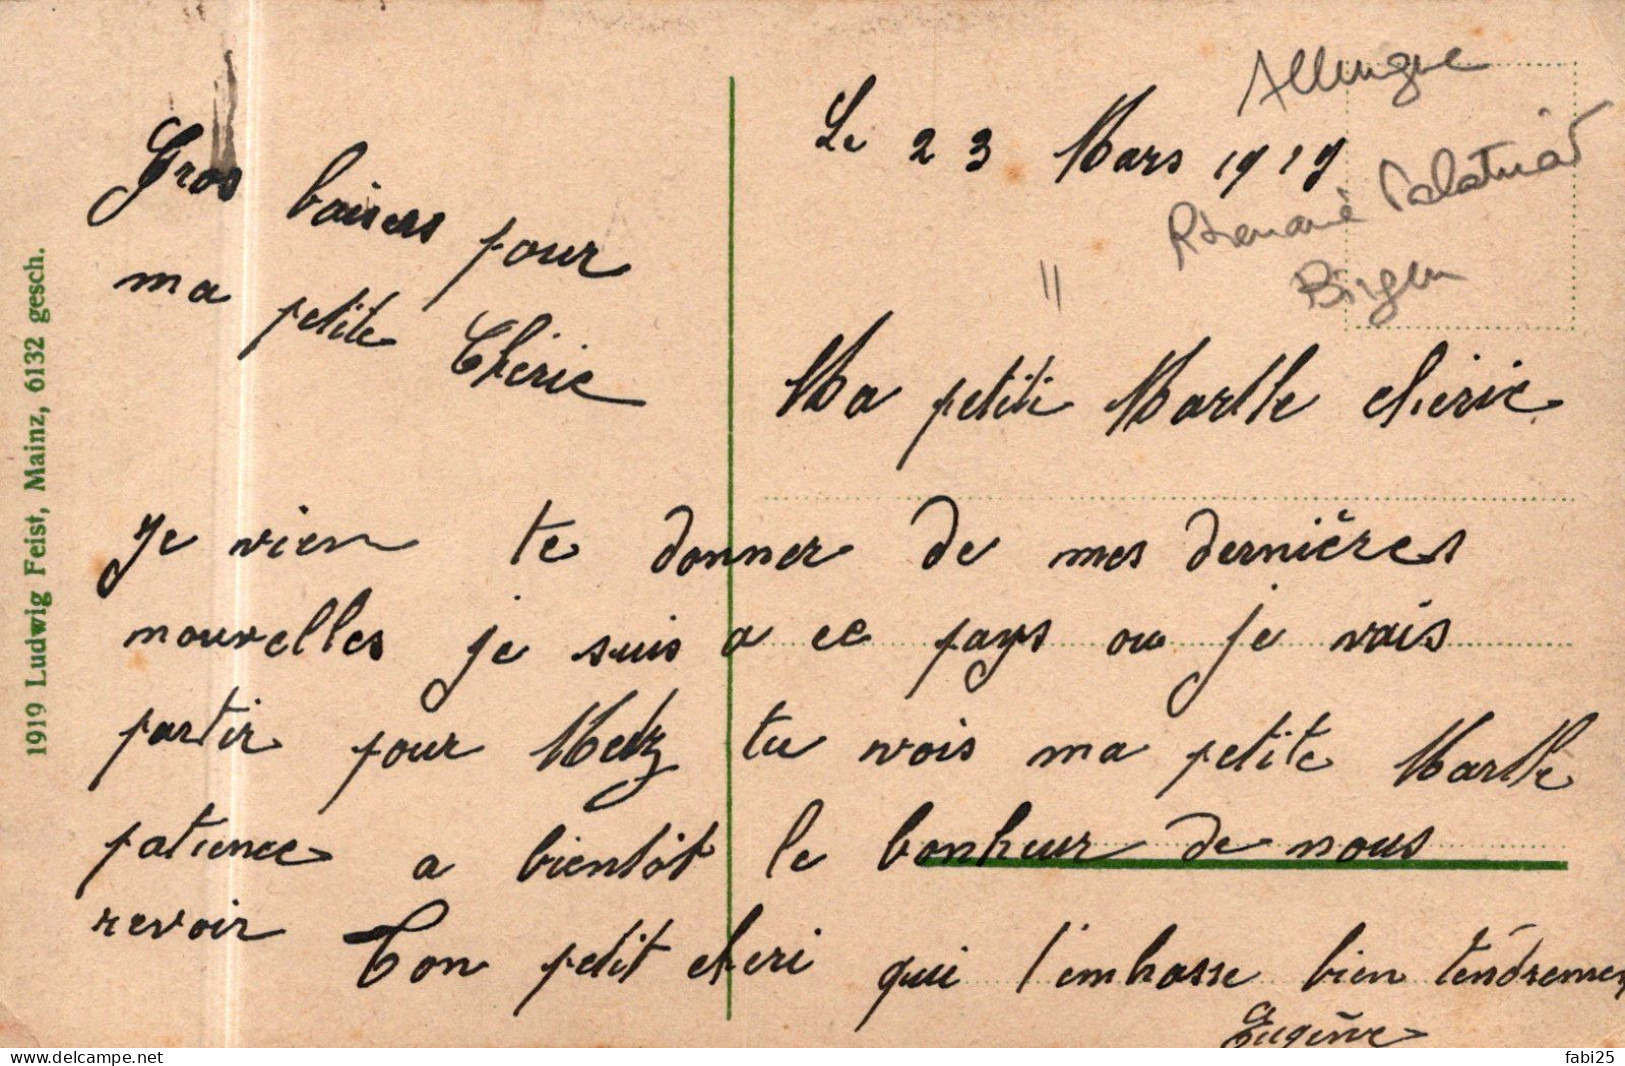 Allemagne
Le 23 Mars 1919
Rhenanie Palatinat
Bingen
Gros baisers pour
ma petite Chérie
Ma petite Marthe cherie
Je vien te donner de mes dernières
nouvelles je suis a ce pays ou je vais
partir pour Metz tu vois ma petite Marthe
patience a bientôt le bonheur de nous
revoir Ton petit cheri qui t'embrasse bien tendrement
Eugène
1919 Ludwig Feist, Mainz, 6132 gesch.
delcampe.net
fabi25